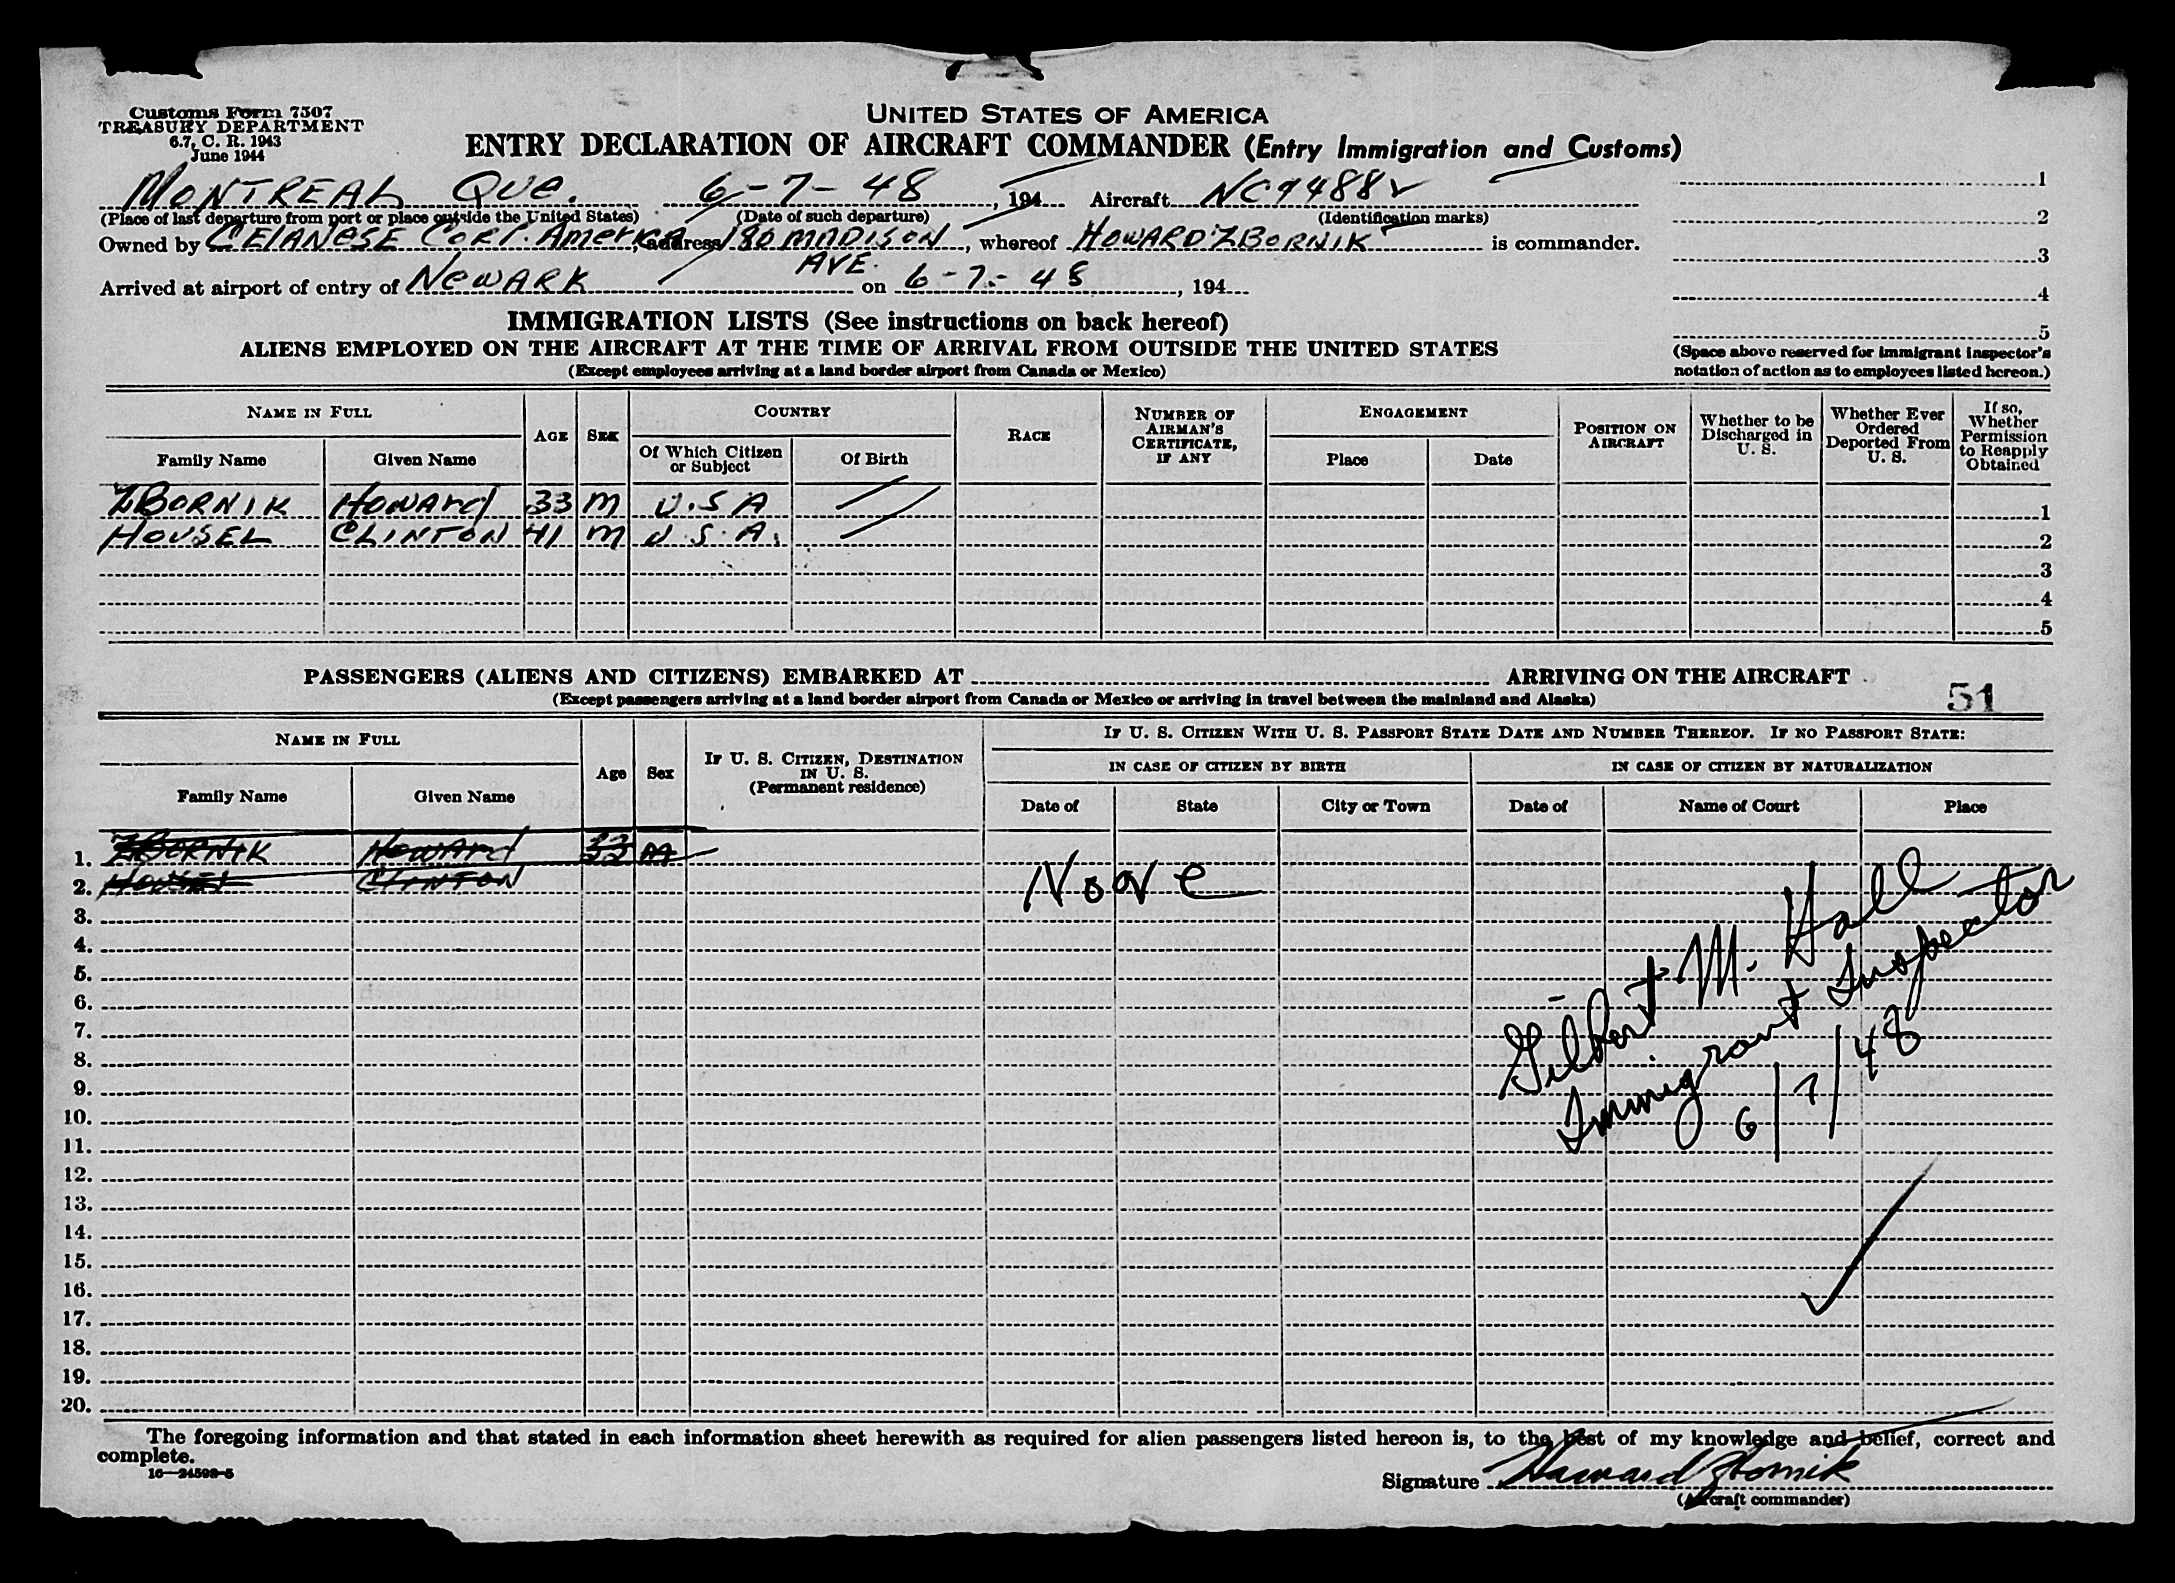 Customs Form 7507
TREASURY DEPARTMENT
6.7, C. R. 1943
June 1944
UNITED STATES OF AMERICA
ENTRY DECLARATION OF AIRCRAFT COMMANDER (Entry Immigration and Customs)
MONTREAL QUE. 6-7-48, 194 Aircraft NC9488V
(Place of last departure from port or place outside the United States) (Date of such departure) (Identification marks)
Owned by CELANESE CORP. AMERICA, address 180 MADISON AVE., whereof HOWARD ZBORNIK is commander.
Arrived at airport of entry of NEWARK on 6-7-48, 194
1
2
3
4
5
(Space above reserved for immigrant inspector's
notation of action as to employees listed hereon.)
IMMIGRATION LISTS (See instructions on back hereof)
ALIENS EMPLOYED ON THE AIRCRAFT AT THE TIME OF ARRIVAL FROM OUTSIDE THE UNITED STATES
(Except employees arriving at a land border airport from Canada or Mexico)
NAME IN FULL
Family Name Given Name
AGE SEX
COUNTRY
Of Which Citizen or Subject
Of Birth
RACE
NUMBER OF AIRMAN'S CERTIFICATE, IF ANY
ENGAGEMENT
Place Date
POSITION ON AIRCRAFT
Whether to be Discharged in U. S.
Whether Ever Ordered Deported From U. S.
If so, Whether Permission to Reapply Obtained
ZBORNIK HOWARD 33 M U.S A 1
HOUSEL CLINTON 41 M U.S.A. 2
3
4
5
PASSENGERS (ALIENS AND CITIZENS) EMBARKED AT ARRIVING ON THE AIRCRAFT
(Except passengers arriving at a land border airport from Canada or Mexico or arriving in travel between the mainland and Alaska)
51
NAME IN FULL
Family Name Given Name
Age Sex
IF U. S. CITIZEN, DESTINATION IN U. S.
(Permanent residence)
IF U. S. CITIZEN WITH U. S. PASSPORT STATE DATE AND NUMBER THEREOF. IF NO PASSPORT STATE:
IN CASE OF CITIZEN BY BIRTH
IN CASE OF CITIZEN BY NATURALIZATION
Date of State City or Town Date of Name of Court Place
1. ZBORNIK HOWARD 33 M
2. HOUSEL CLINTON
None
3.
4.
5.
6.
7.
8.
9.
10.
11.
12.
13.
14.
15.
16.
17.
18.
19.
20.
Gilbert M. Hall
Immigrant Inspector
6/7/48
The foregoing information and that stated in each information sheet herewith as required for alien passengers listed hereon is, to the best of my knowledge and belief, correct and
complete.
16—24598-5
Signature Howard Zbornik
(Aircraft commander)